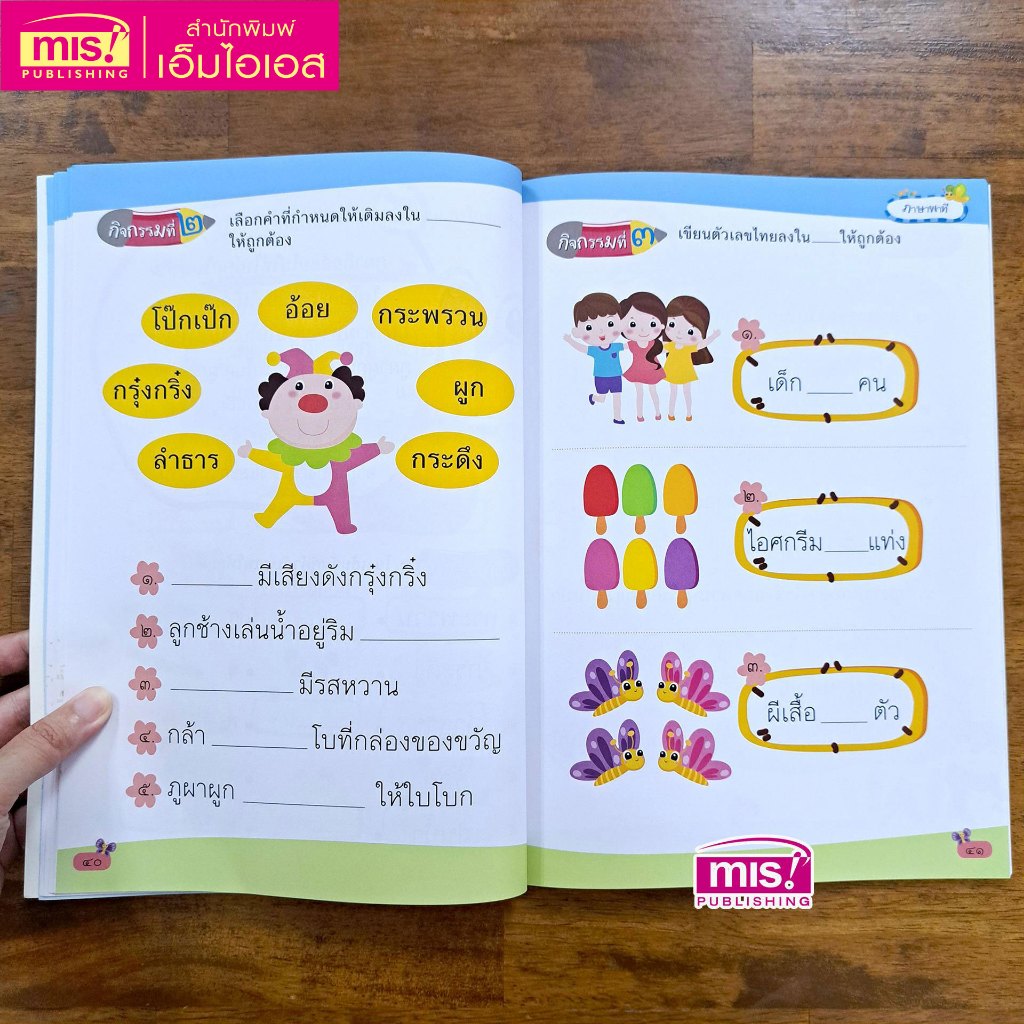 mis!
PUBLISHING
สำนักพิมพ์
เอ็มไอเอส
กิจกรรมที่ ๒
เลือกคำที่กำหนดให้เติมลงใน ________
ให้ถูกต้อง
โป๊กเป๊ก
อ้อย
กระพรวน
กรุ๋งกริ๋ง
ผูก
ลำธาร
กระดึง
๑. ________ มีเสียงดังกรุ๋งกริ๋ง
๒. ลูกช้างเล่นน้ำอยู่ริม ________
๓. ________ มีรสหวาน
๔. กล้า ________ โบที่กล่องของขวัญ
๕. ภูผาผูก ________ ให้ใบโบก
๔๐
ภาษาพาที
กิจกรรมที่ ๓
เขียนตัวเลขไทยลงใน ____ ให้ถูกต้อง
๑.
เด็ก ____ คน
๒.
ไอศกรีม ____ แท่ง
๓.
ผีเสื้อ ____ ตัว
๔๑
mis!
PUBLISHING